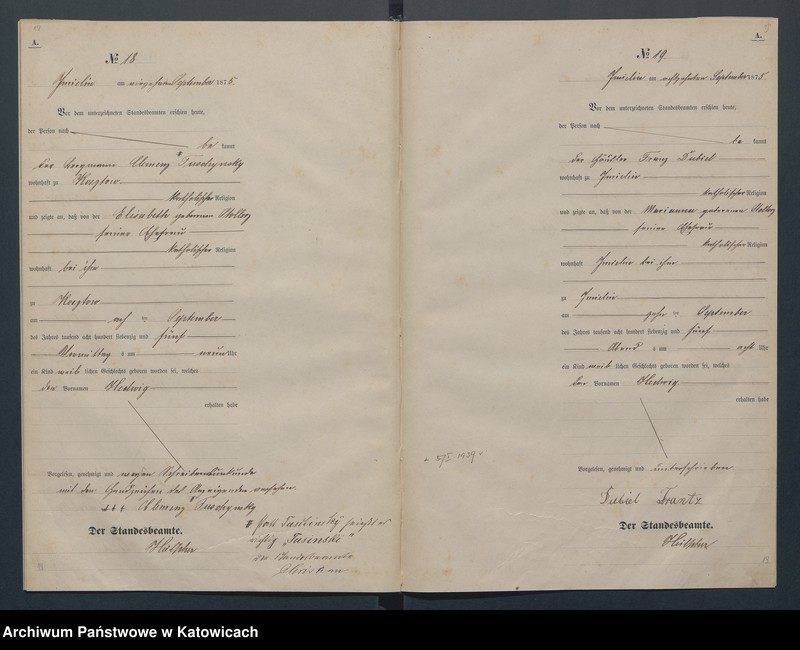 A.
№ 18
Imielin am vierzehnten September 1875.
Vor dem unterzeichneten Standesbeamten erschien heute,
der Person nach
bekannt
der Bergmann Clemenz
wohnhaft zu Kosztow
katholischer Religion
und zeigte an, daß von der Elisabeth geborenen
seiner Ehefrau
katholischer Religion
wohnhaft bei ihm
zu Kosztow
am September
des Jahres tausend acht hundert siebenzig und fünf
Vormittag um neun Uhr
ein Kind weiblichen Geschlechts geboren worden sei, welches
den Vornamen Hedwig
erhalten habe
Vorgelesen, genehmigt und wegen Schreibensunkunde
mit den Handzeichen des Anzeigenden versehen.
+++ Clemenz
Der Standesbeamte.
richtig „Tusinski"
der Standesbeamte
A.
№ 19
Imielin am achtzehnten September 1875.
Vor dem unterzeichneten Standesbeamten erschien heute,
der Person nach
bekannt
der Häusler Franz Dubiel
wohnhaft zu Imielin
katholischer Religion
und zeigte an, daß von der Marianna geborenen
seiner Ehefrau
katholischer Religion
wohnhaft Imielin bei ihm
zu Imielin
am September
des Jahres tausend acht hundert siebenzig und fünf
Abend um acht Uhr
ein Kind weiblichen Geschlechts geboren worden sei, welches
den Vornamen Hedwig
erhalten habe
Vorgelesen, genehmigt und unterschrieben.
Dubiel Frantz
Der Standesbeamte.
Archiwum Państwowe w Katowicach